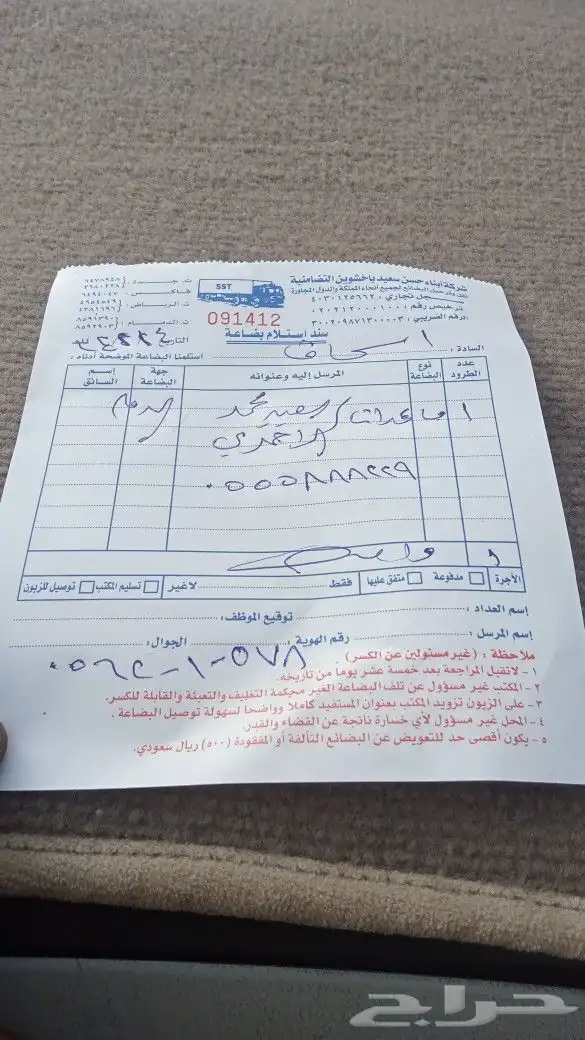 شركة أبناء حسن سعيد باخشوين التضامنية
نقل وشحن البضائع لجميع أنحاء المملكة والدول المجاورة
سجل تجاري : ٤٠٣٠١٢٥٦٦٢
ترخيص رقم :
الرقم الضريبي : ٣٠٠٢٠٩٨٧١٣٠٠٠٠٣
SST
091412
سند استلام بضاعة
ت. جدة :
فاكس :
ت. الرياض :
ت. الدمام :
التاريخ
السادة :
استلمنا البضاعة الموضحة أدناه :
عدد الطرود
نوع البضاعة
المرسل إليه وعنوانه
جهة البضاعة
إسم السائق
١
السيد محمد
الدمام
الاحمدي
٠٥٥٥٨٨٨٢٢٩
١
واحد
الأجرة
مدفوعة
متفق عليها
فقط
لاغير
تسليم المكتب
توصيل للزبون
إسم العداد :
توقيع الموظف :
إسم المرسل :
رقم الهوية :
الجوال :
٠٥٦٢٠١٠٥٧٨
ملاحظة : (غير مسئولين عن الكسر)
١ - لاتقبل المراجعة بعد خمسة عشر يوماً من تاريخه.
٢ - المكتب غير مسؤول عن تلف البضاعة الغير محكمة التغليف والتعبئة والقابلة للكسر.
٣ - على الزبون تزويد المكتب بعنوان المستفيد كاملاً وواضحاً لسهولة توصيل البضاعة .
٤ - المحل غير مسؤول لأي خسارة ناتجة عن القضاء والقدر.
٥ - يكون أقصى حد للتعويض عن البضائع التالفة أو المفقودة (٥٠٠) ريال سعودي.
حراج